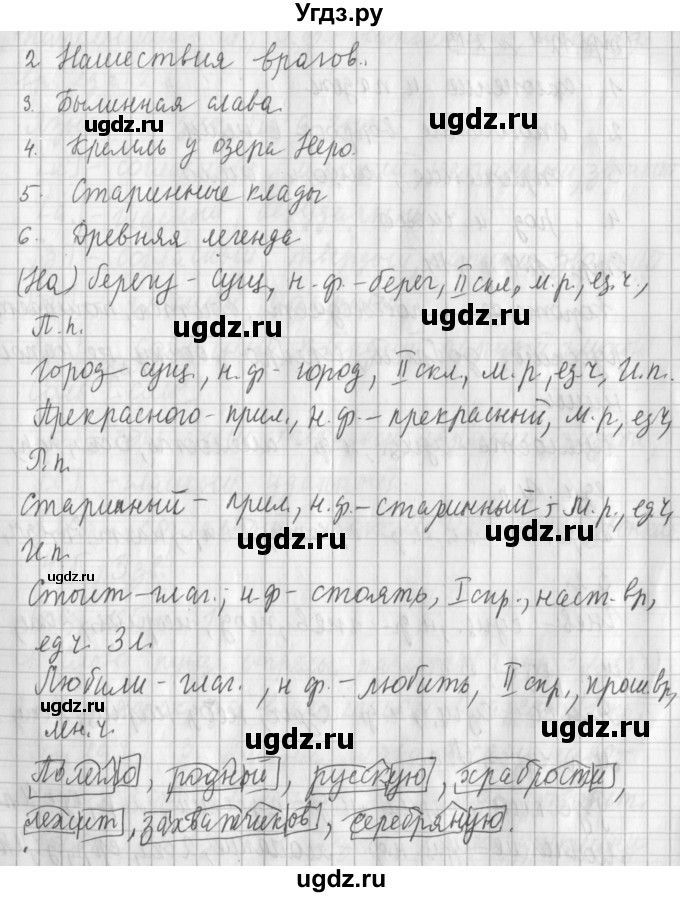 Угдз.ру
2. Нашествия врагов.
3. Былинная слава.
ugdz.ru
ugdz.ru
4. Кремль у озера Неро.
5. Старинные клады
ugdz.ru
6. Древняя легенда
(На) берегу - сущ, н.ф. - берег, II скл, м.р., ед.ч.,
П.п.
ugdz.ru
ugdz.ru
город - сущ., н.ф - город, II скл., м.р, ед.ч, И.п.
Прекрасного - прил., н.ф. - прекрасный, м.р, ед.ч,
Р.п.
ugdz.ru
ugdz.ru
Старинный - прил, н.ф. - старинный; м.р., ед.ч,
И.п.
ugdz.ru
ugdz.ru
ugdz.ru
Стоит - глаг.; н.ф - стоять, I спр., наст. вр,
ед ч. 3 л.
ugdz.ru
ugdz.ru
Любили - глаг., н ф. - любить, II спр., прош вр,
ugdz.ru
ugdz.ru
мн. ч.
, родной, русскую, храбрости,
ugdz.ru
ugdz.ru
лежит, захватчиков, серебряную.
ugdz.ru
ugdz.ru